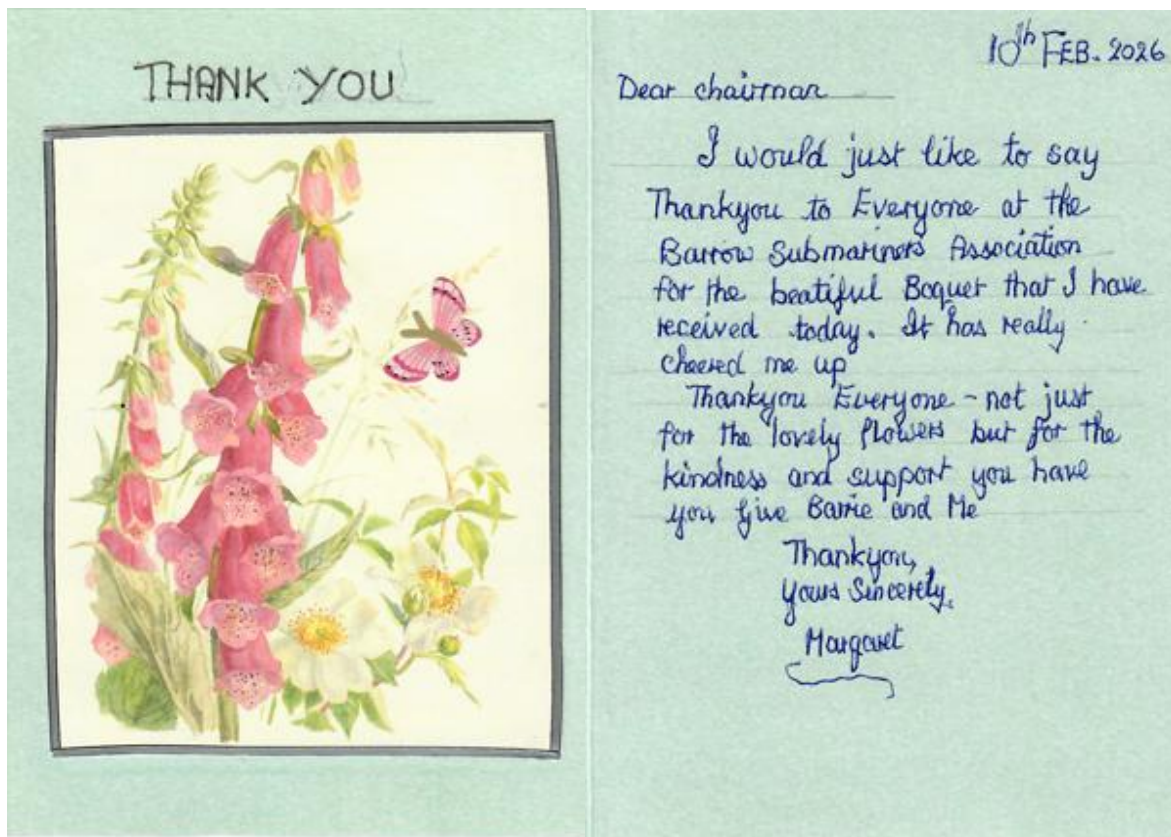 THANK YOU
10th FEB. 2026
Dear chairman
I would just like to say
Thankyou to Everyone at the
Barrow Submariners Association
for the beatiful Boquet that I have
received today. It has really
cheered me up
Thankyou Everyone - not just
for the lovely flowers but for the
kindness and support you have
you Give Barrie and Me
Thankyou,
Yours Sincerely,
Margaret